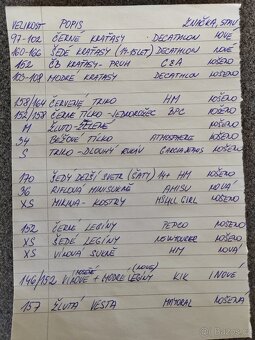 VELIKOST POPIS ZNAČKA, STAV
97-102 ČERNÉ KRAŤASY DECATHLON NOVÉ
160-166 ŠEDÉ KRAŤASY (14-15LET) DECATHLON NOŠENO
152 ČB KRAŤASY- PRUH C&A NOŠENO
103-108 MODRÉ KRAŤASY DECATHLON NOŠENO
158/164 ČERVENÉ TRIKO HM NOŠENO
152/158 ČERNÉ TRIKO -JEDNOROŽEC BPC NOŠENO
M ŽLUTO-ZELENÉ NOŠENO
34 BÉŽOVÉ TÍLKO ATMOSPHERE NOŠENO
S TRIKO-DLOUHÝ RUKÁV NOŠENO
170 ŠEDÝ DELŠÍ SVETR (ŠATY) 14+ HM NOŠENO
36 RIFLOVÁ MINISUKNĚ AMISU NOVÁ
XS MIKINA - KOSTRY GIRL NOŠENO
152 ČERNÉ LEGÍNY PEPCO NOŠENO
XS ŠEDÉ LEGÍNY NEWYORKER NOŠENO
XS VÍNOVÁ SUKNĚ HM NOVÁ
146/152 VÍNOVÉ + MODRÉ LEGÍNY (NOVÉ) KIK NOVÉ
157 ŽLUTÁ VESTA MAYORAL NOŠENÁ